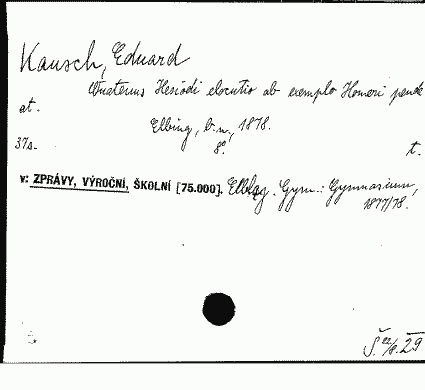 Kausch, Eduard
Quatenus Hesiodi elocutio ab exemplo Homeri pende
at.
Elbing, b.n., 1878.
37s. 8° t.
v: ZPRÁVY, VÝROČNÍ, ŠKOLNÍ [75.000]. Elbląg. Gym.: Gymnasium,
1877/78.
Š. 22/8. 29